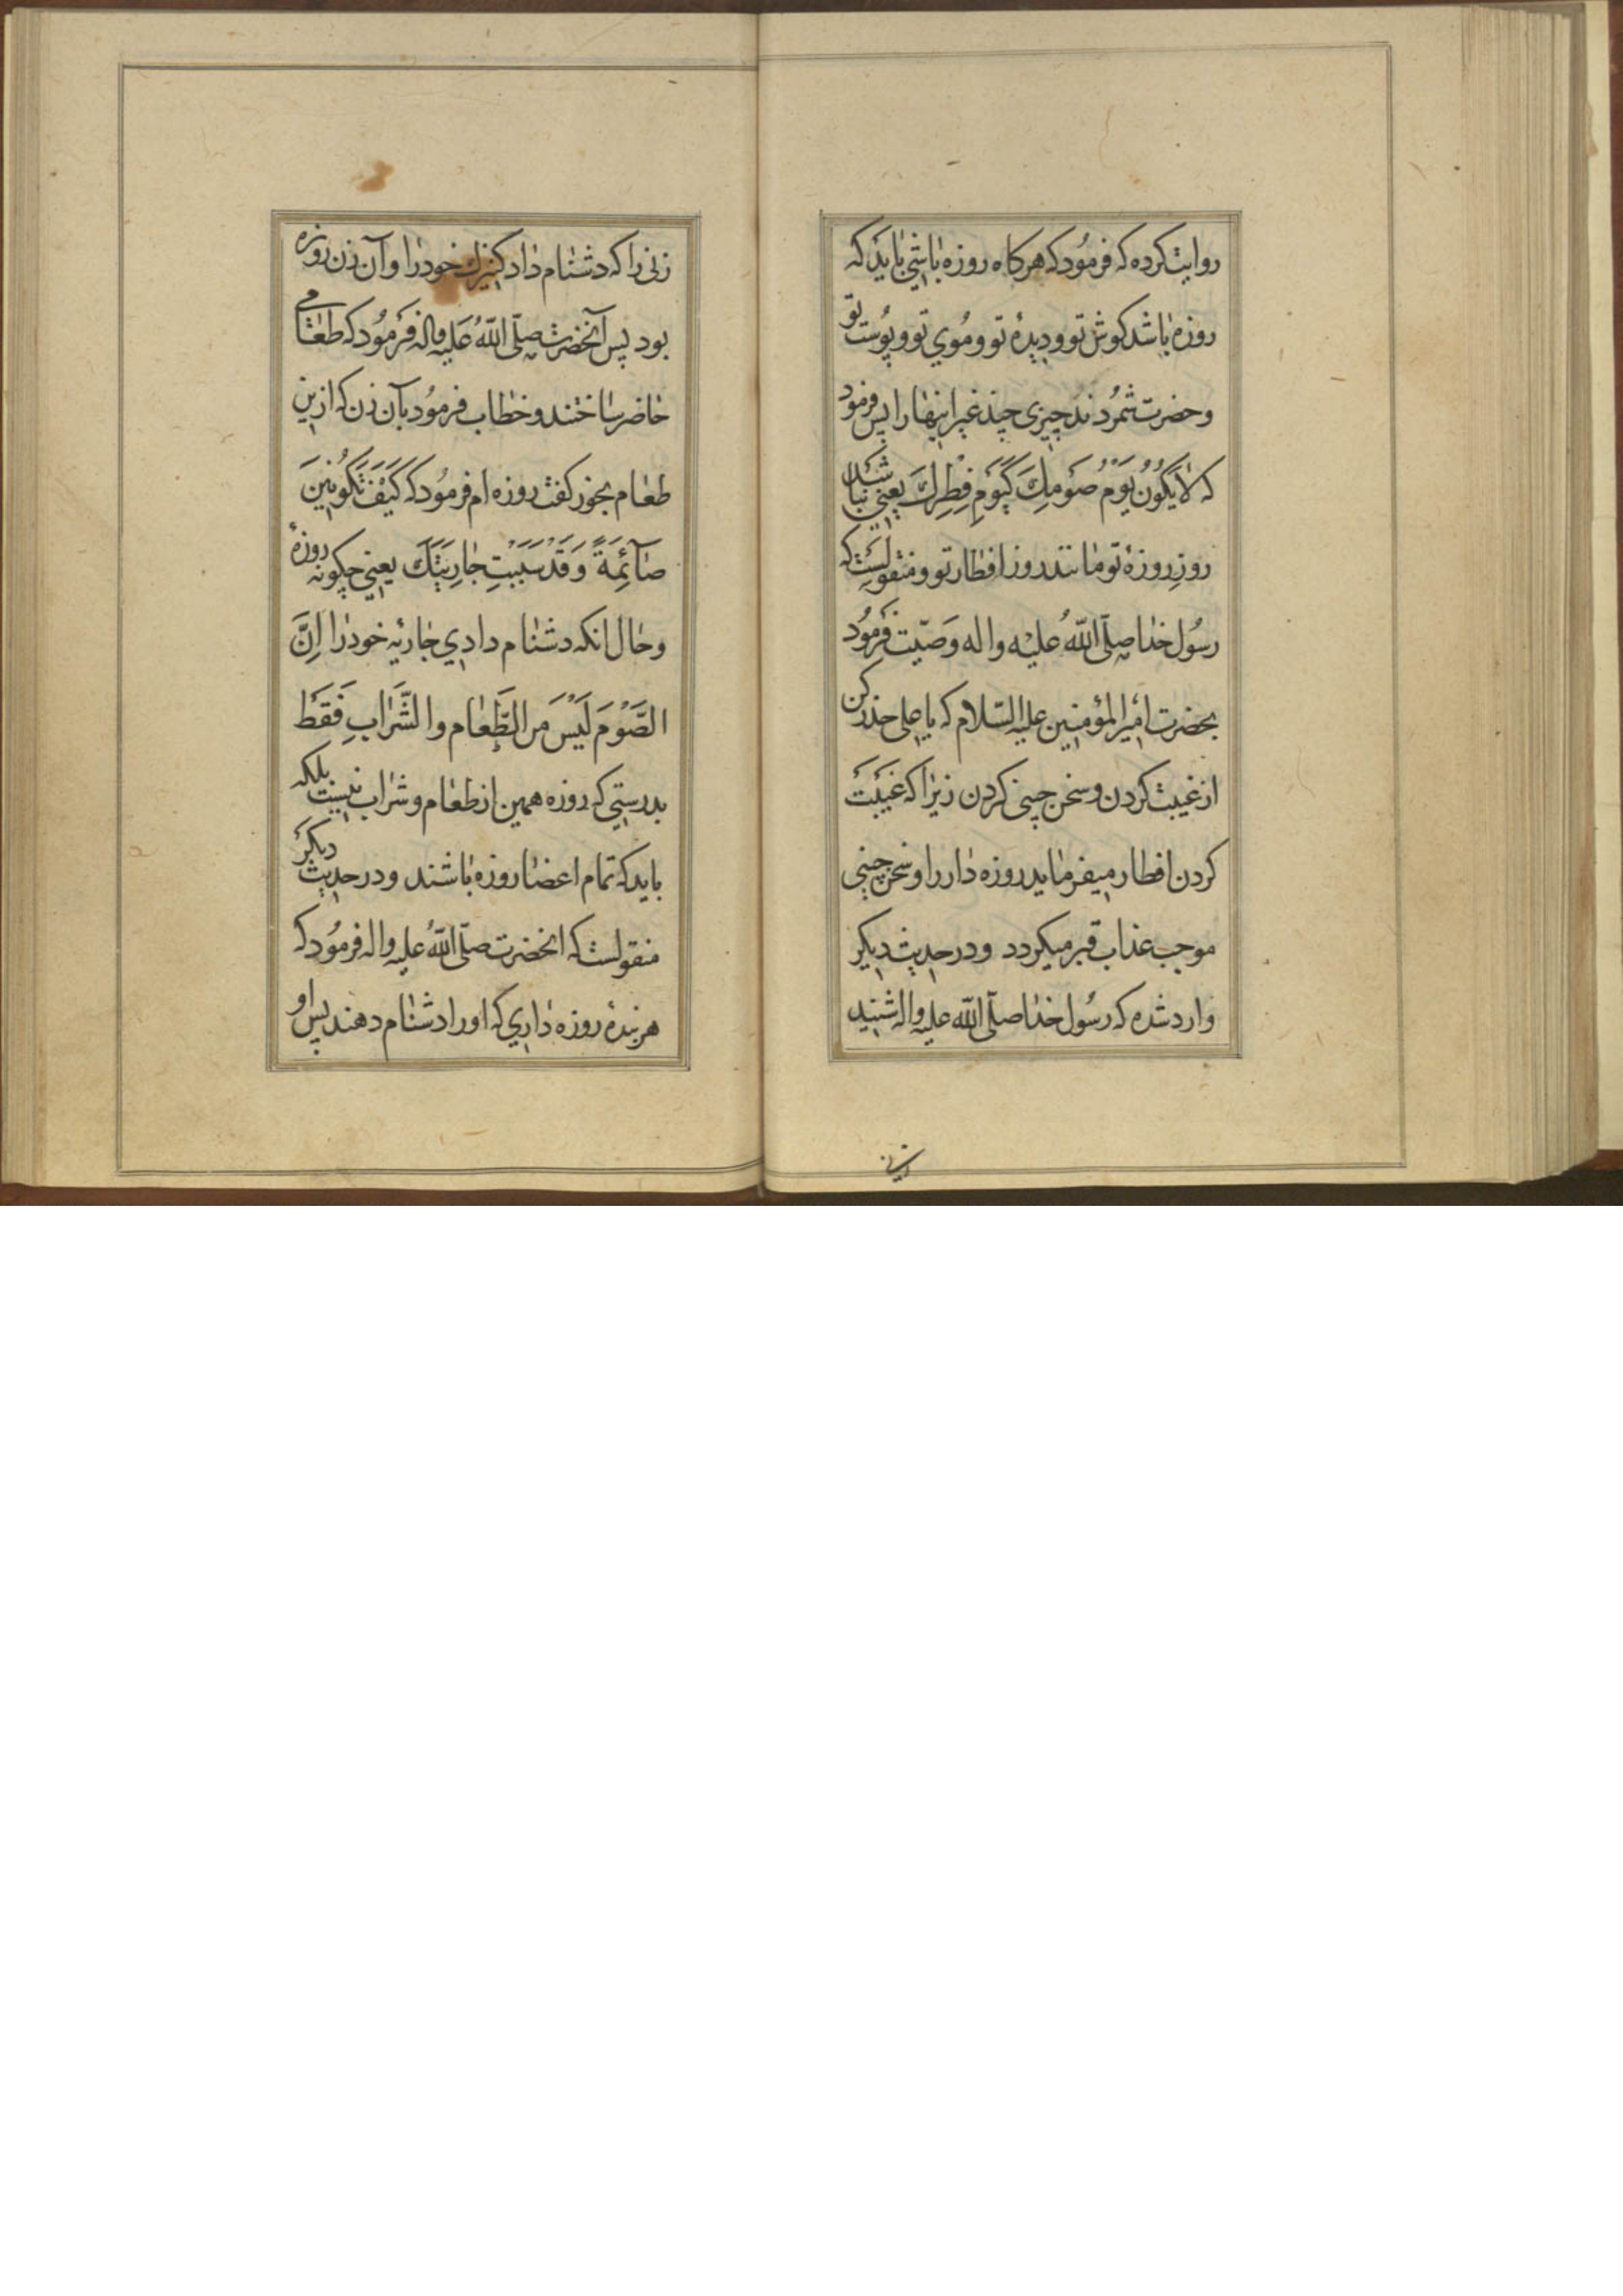 روایت کرده که فرمُود که هرکاه روزه باشی بایَد که
روزه باشد کوش تو و دیدۀ تو و مُوی تو و پُوست تو
و حضرت شمُردند چیزی چند غیر اینها را پس فرمود
که لَا یَکُونُ یَوْمُ صَومِكَ کَیَومِ فِطْرِكَ یعنی نباشد
روزِ روزۀ تو مانند روز افطار تو و منقولست که
رسُول خدا صلّی اللّهُ علیْه واله وَصیّت فَرمُود
بحضرت امیر المؤمنین علیه السّلام که یا علی حذر کن
از غیبت کردن و سخن چینی کردن زیرا که غَیبَت
کردن افطار میفرماید روزه دار را و سخن چینی
موجب عذاب قبر میکردد و در حدیث دیکر
وارد شده که رسُول خدا صلّی اللّه علیه واله شنید
زنی را که دشنام داد کنیزك خود را و آن زن روزه
بود پس آنحضرت صلّی اللّهُ عَلیه واله فَرمُود که طعامی
حاضر ساختند و خطاب فرمُود بآن زن که ازین
طعام بخور کفت روزه ام فرمُود که کَیْفَ تَکُونِینَ
صَآئِمَةً وَقَدْ سَبَبْتِ جَارِیَتَكَ یعنی چکونه روزۀ
و حال انکه دشنام دادی جاریۀ خود را اِنَّ
الصَّوْمَ لَیْسَ مِن الطَّعام والشَّرابِ فَقَط
بدرستی که روزه همین از طعام و شراب نیست بلکه
باید که تمام اعضا روزه باشند و در حدیث دیکر
منقولست که انحضرت صلّی اللّهُ علیه واله فرمُود که
هر بندۀ روزه داری که او را دشنام دهند پس او